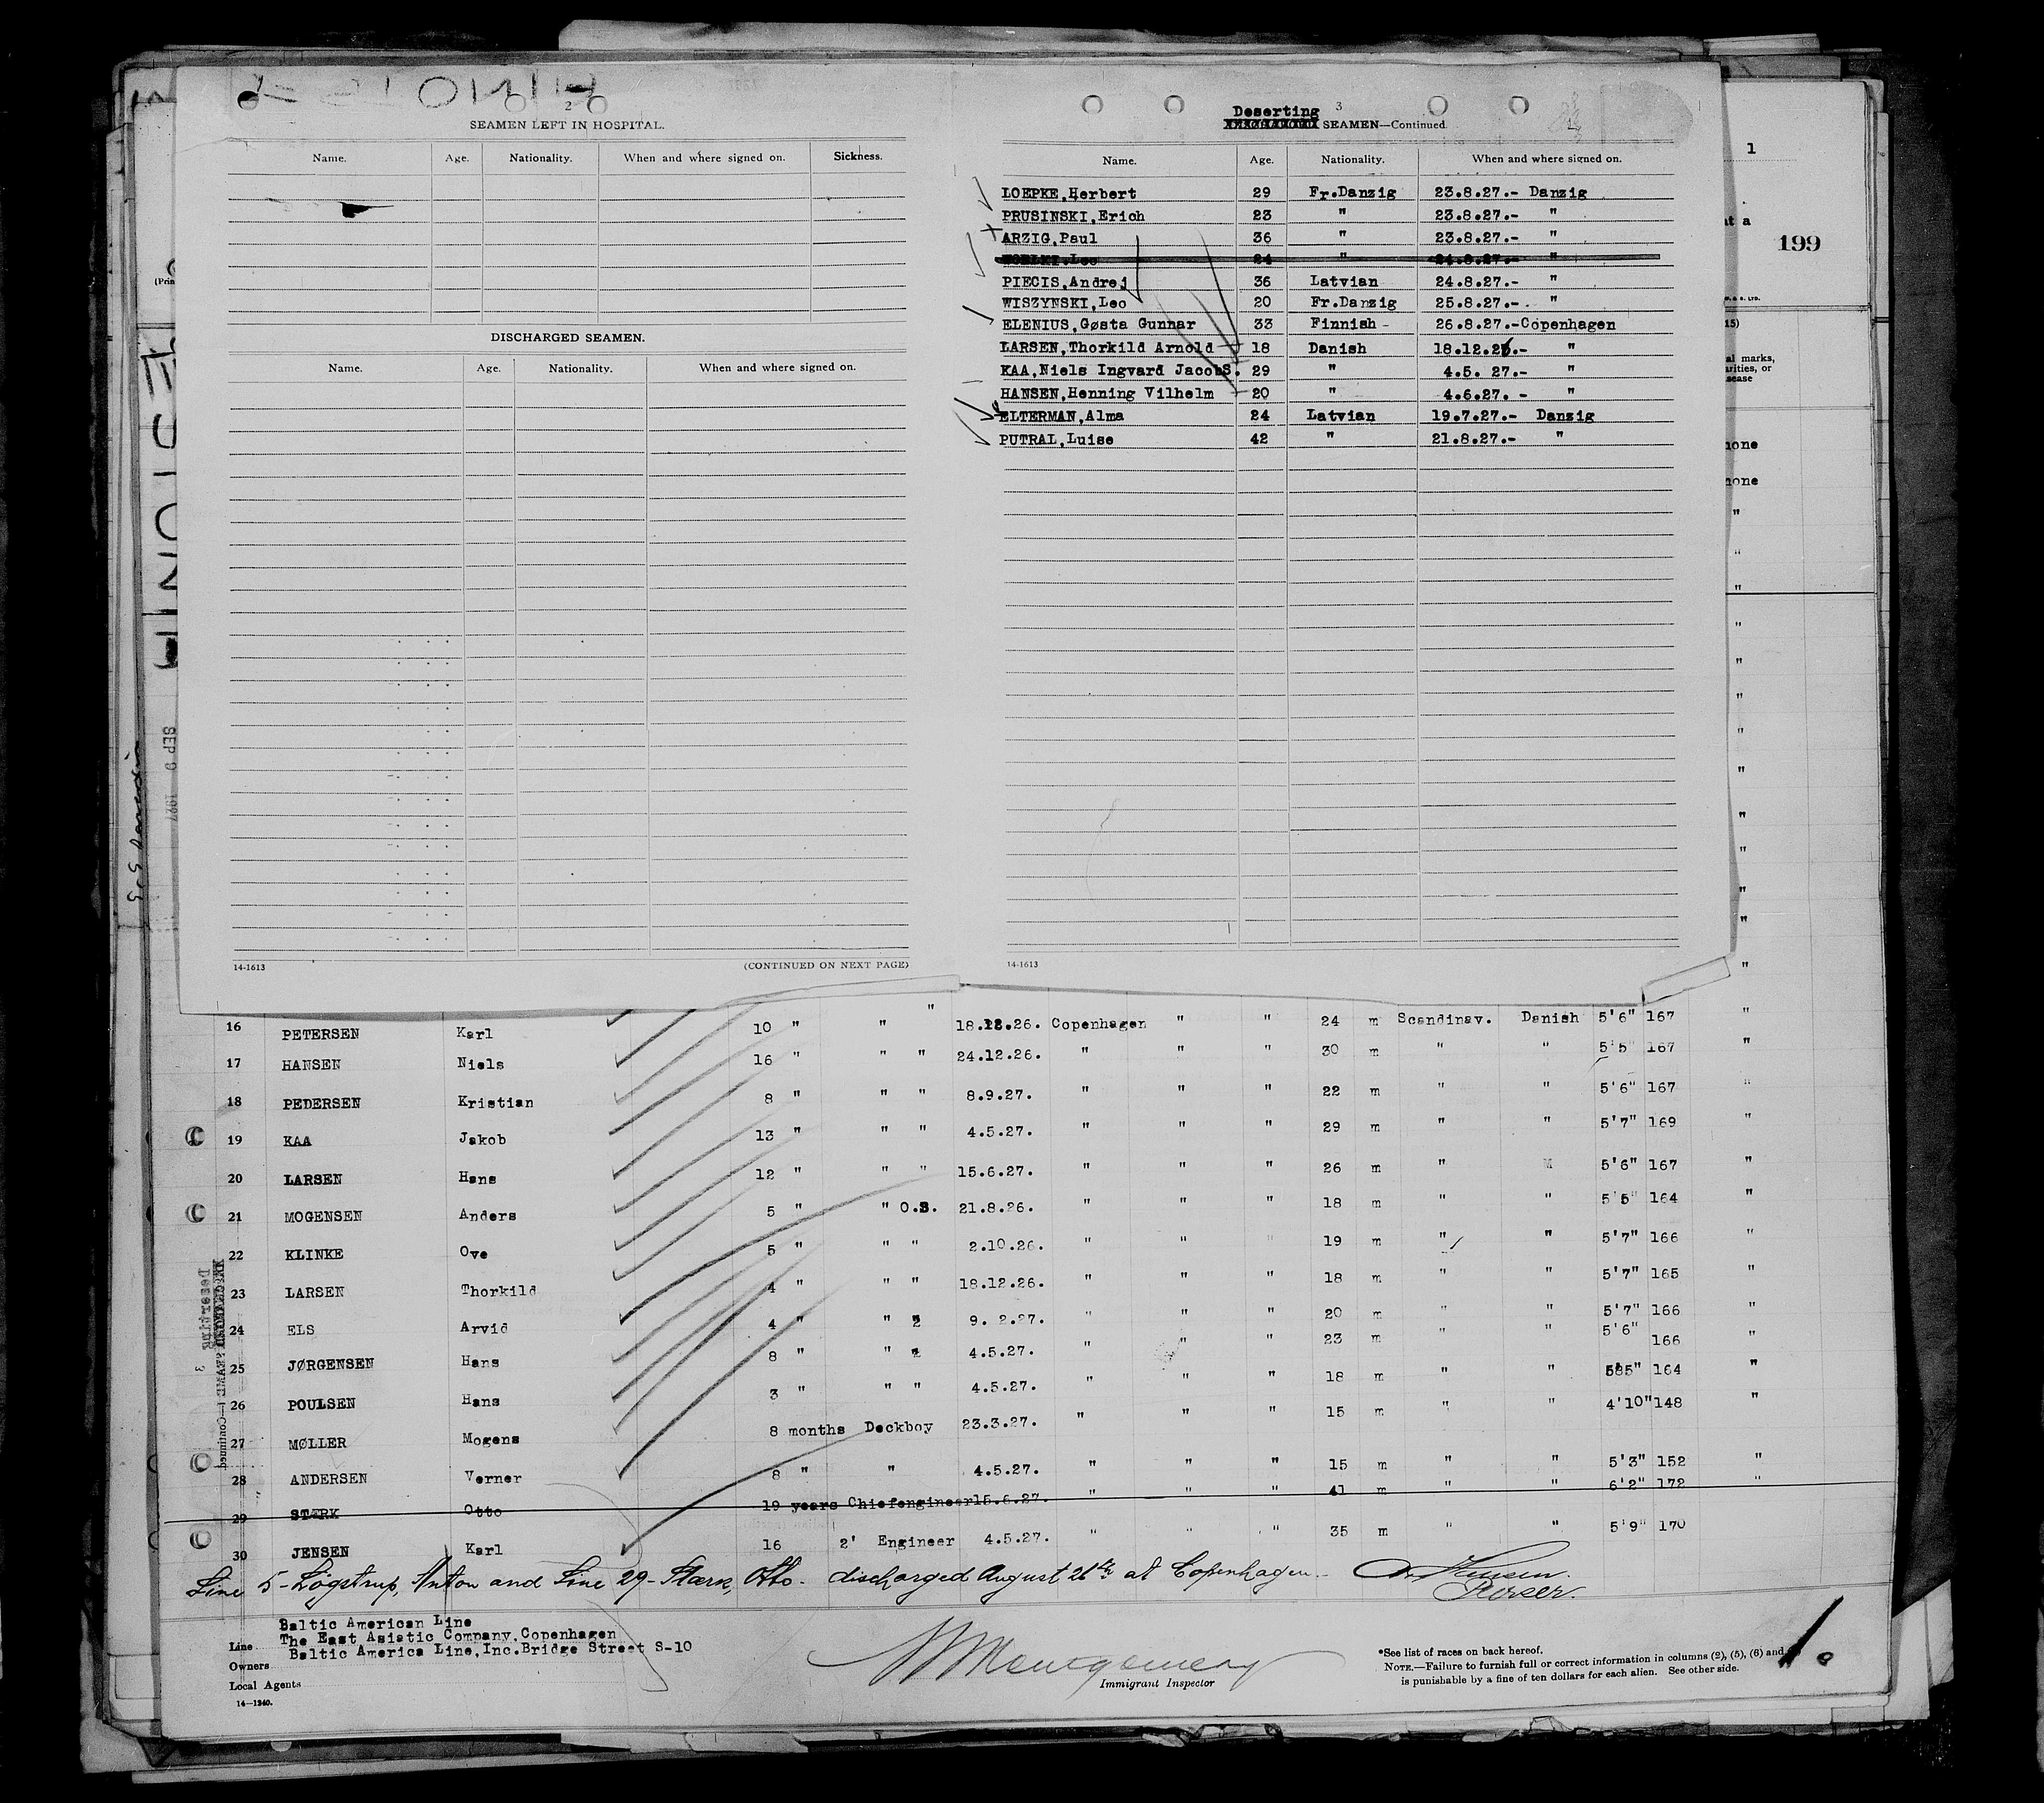 2
SEAMEN LEFT IN HOSPITAL.
Name. Age. Nationality. When and where signed on. Sickness.
DISCHARGED SEAMEN.
Name. Age. Nationality. When and where signed on.
14-1613 (CONTINUED ON NEXT PAGE)
Deserting 3
SEAMEN—Continued.
Name. Age. Nationality. When and where signed on.
LOEPKE,Herbert 29 Fr.Danzig 23.8.27.- Danzig
PRUSINSKI,Erich 23 " 23.8.27.- "
ARZIG,Paul 36 " 23.8.27.- "
Leo 24 " 24.8.27.- "
PIECIS,Andrej 36 Latvian 24.8.27.- "
WISZYNSKI,Leo 20 Fr.Danzig 25.8.27.- "
ELENIUS,Gøsta Gunnar 33 Finnish - 26.8.27.-Copenhagen
LARSEN,Thorkild Arnold 18 Danish 18.12.26.- "
KAA,Niels Ingvard JacobS. 29 " 4.5. 27.- "
HANSEN,Henning Vilhelm 20 " 4.6.27. - "
ELTERMAN,Alma 24 Latvian 19.7.27.- Danzig
PUTRAL,Luise 42 " 21.8.27.- "
14-1613
1
at a
199
al marks,
arities, or
sease
none
none
SEP 9 1927
16 PETERSEN Karl 10 " " 18.12.26. Copenhagen " " 24 m Scandinav. Danish 5'6" 167 "
17 HANSEN Niels 16 " " " 24.12.26. " " " 30 m " " 5'5" 167 "
18 PEDERSEN Kristian 8 " " " 8.9.27. " " " 22 m " " 5'6" 167 "
19 KAA Jakob 13 " " " 4.5.27. " " " 29 m " " 5'7" 169 "
20 LARSEN Hans 12 " " " 15.6.27. " " " 26 m " " 5'6" 167 "
21 MOGENSEN Anders 5 " " O.S. 21.8.26. " " " 18 m " " 5'5" 164 "
22 KLINKE Ove 5 " " " 2.10.26. " " " 19 m " " 5'7" 166 "
23 LARSEN Thorkild 4 " " " 18.12.26. " " " 18 m " " 5'7" 165 "
24 ELS Arvid 4 " " 2 9. 2.27. " " " 20 m " " 5'7" 166 "
25 JØRGENSEN Hans 8 " " 2 4.5.27. " " " 23 m " " 5'6" 166 "
26 POULSEN Hans 3 " " " 4.5.27. " " " 18 m " " 5'5" 164 "
27 MØLLER Mogens 8 months Deckboy 23.3.27. " " " 15 m " " 4'10" 148 "
28 ANDERSEN Verner 8 " " 4.5.27. " " " 15 m " " 5'3" 152 "
29 STÆRK Otto 19 years Chiefengineer 15.6.27. " " " 41 m " " 6'2" 172 "
30 JENSEN Karl 16 2' Engineer 4.5.27. " " " 35 m " " 5'9" 170
Line 5 - Løgstrup, Anton and Line 29 - Stærk, Otto - discharged August 26th at Copenhagen.
Purser.
Baltic American Line
Line The East Asiatic Company.Copenhagen
Owners Baltic America Line,Inc.Bridge Street S-10
Local Agents
14—1240.
Montgomery
Immigrant Inspector
*See list of races on back hereof.
NOTE.—Failure to furnish full or correct information in columns (2), (5), (6) and
is punishable by a fine of ten dollars for each alien. See other side.
1.